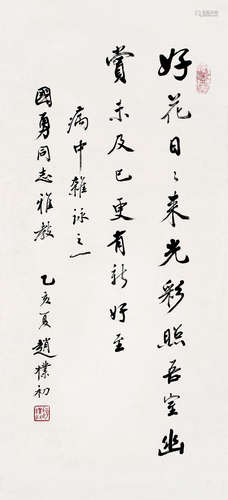 好花日〻来光彩照吾室幽
賞未及已更有新好至
病中雜詠之一
國勇同志雅教
乙亥夏趙樸初